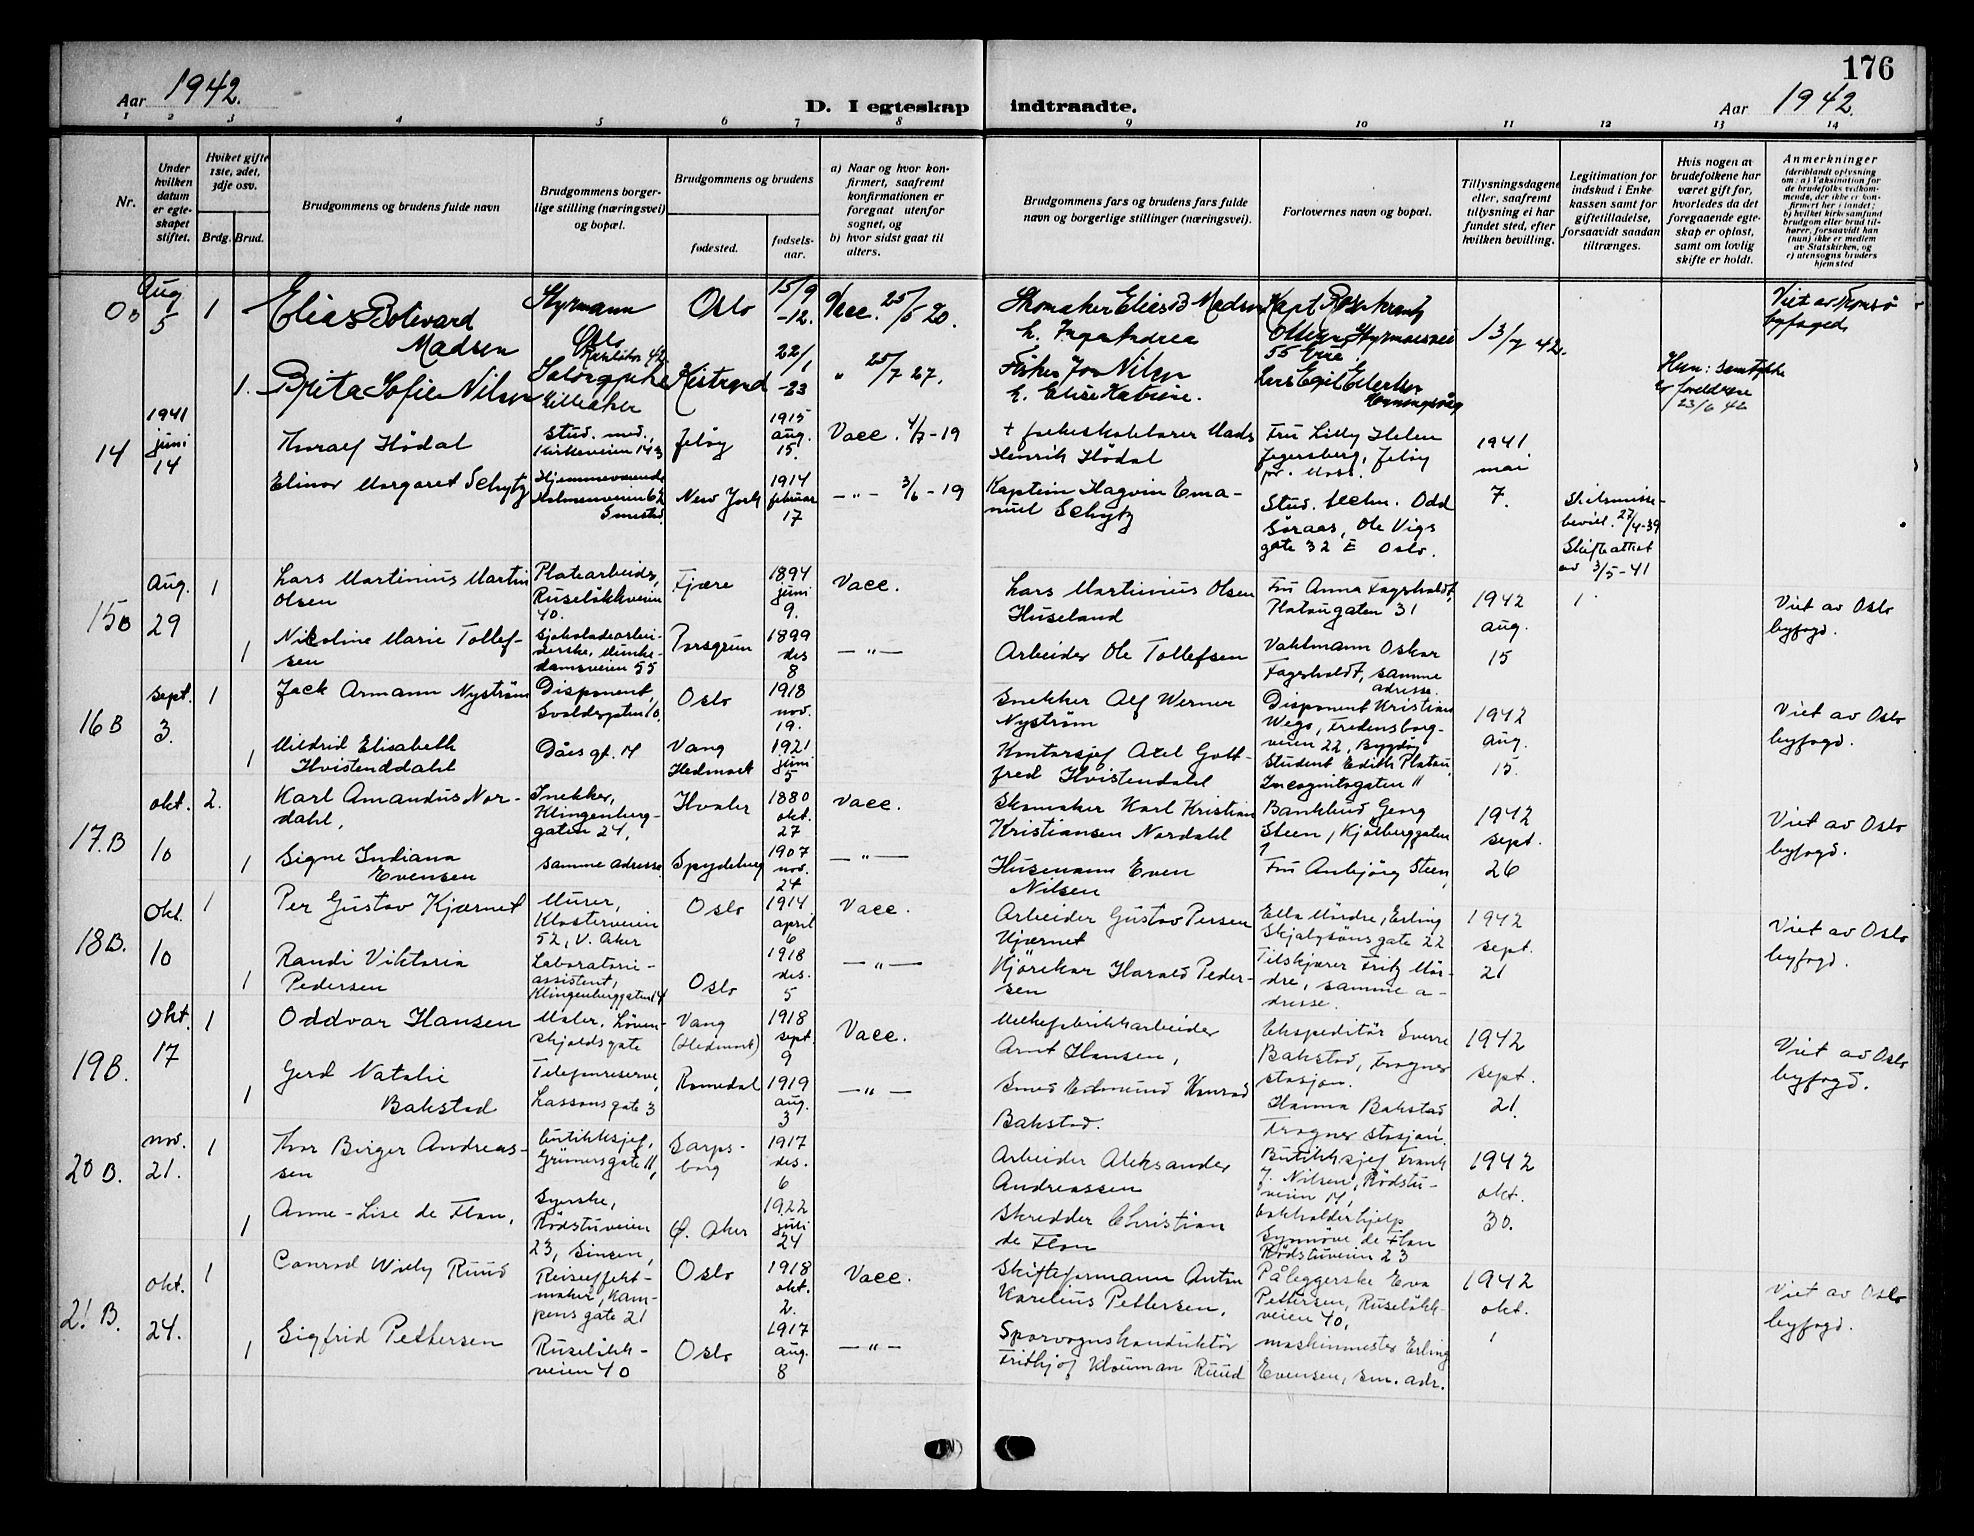 176
Aar 1942.
D. I egteskap indtraadte.
Aar 1942.
1 2 3 4 5 6 7 8 9 10 11 12 13 14
Nr.
Under hvilken datum er egteskapet stiftet.
Hviket gifte 1ste, 2det, 3dje osv.
Brdg. Brud.
Brudgommens og brudens fulde navn
Brudgommens borgerlige stilling (næringsvei) og bopæl.
Brudgommens og brudens
fødested.
fødselsaar.
a) Naar og hvor konfirmert, saafremt konfirmationen er foregaat utenfor sognet, og
b) hvor sidst gaat til alters.
Brudgommens fars og brudens fars fulde navn og borgerlige stillinger (næringsvei).
Forlovernes navn og bopæl.
Tillysningsdagene eller, saafremt tillysning ei har fundet sted, efter hvilken bevilling.
Legitimation for indskud i Enkekassen samt for giftetilladelse, forsaavidt saadan tiltrænges.
Hvis nogen av brudefolkene har været gift før, hvorledes da det foregaaende egteskap er opløst, samt om lovlig skifte er holdt.
Anmerkninger (deriblandt oplysning om: a) Vaksination for de brudefolks vedkommende, der ikke er konfirmert her i landet; b) hvilket kirkesamfund brudgom eller brud tilhører, forsaavidt han (hun) ikke er medlem av Statskirken, og c) utensogns bruders hjemsted
Aug 5
1
Elias Bolevard Madsen
Styrmann
Oslo
Oslo
15/9 -12.
Vacc. 25/5 20.
Skomaker Elias B Madsen
h. Inga Andrea
13/7 42.
Viet av Tromsø byfoged
1.
Brita Sofie Nilsen
Lilleaker
Kistrand
22/1 -23
" 25/7 27.
Fisker Nilsen
h. Elise Katrine.
Hun: samtykke
foreldre
23/6 42
14
1941 juni 14
Thoralf Hødal
Stud. med., Kirkeveien 143
Jeløy
1915 aug. 15.
Vacc. 4/7 - 19
+ folkeskolelærer Mads Henrik Hödal
Fru Lilly Helen Jegersberg, Jeløy pr. Moss.
1941 mai 7.
Elinor Margaret Schytz
Hjemmeværende Holmenveien 62 Smestad
New York
1914 februar 17
- " - 3/6 - 19
Kaptein Hagvin Emanuel Schytz
Stud. techn. Odd Søraas, Ole Vigs gate 32 E Oslo.
Skilsmissebevill. 27/4-39
Skifteattest av 3/5 - 41
15B
Aug. 29
1
Lars Martinius Martin Olsen
Platearbeider, Ruseløkkveien 40.
Fjære
1894 juni 9.
Vacc.
Lars Martinius Olsen Huseland
Fru Anna Fagerholdt, Platougaten 31
1942 aug. 15
Viet av Oslo byfogd.
1
Nikoline Marie Tollefsen
Sjokoladearbeiderske, Munkedamsveien 55
Porsgrun
1899 des 8
- " -
Arbeider Ole Tollefsen
Vaktmann Oskar Fagerholdt, samme adresse.
16B
sept. 3.
1
Jack Armann Nyström
Disponent, Svoldergaten 10.
Oslo
1918 nov. 19.
Snekker Alf Werner Nyström
Disponent Kristian Wegs, Fredensborgveien 22, Bygdøy
1942 aug. 15.
Viet av Oslo byfogd.
1
Mildrid Elisabeth Hvistenddahl
Dåes gt. 14
Vang Hedmark
1921 juni 5
Kontorsjef Axel Gottfred Hvistendahl
Student Edith Platou, Incognitogaten 11
17.B
okt. 10
2.
Karl Amandus Nordahl,
Snekker, Klingenberggaten 24,
Hvaler
1880 okt. 27
Vacc.
Skomaker Karl Kristian Kristiansen Nordahl
Bankbud Georg Steen, Kjölberggaten 1
1942 sept. 26
Viet av Oslo byfogd.
1
Signe Indiana Evensen
samme adresse
Spydeberg
1907 nov. 24
- " -
Husmann Even Nilsen
Fru Anbjörg Steen,
18B.
Okt. 10
1
Per Gustav Kjærnet
Murer, Klosterveien 52, V. Aker
Oslo
1914 april 6
Vacc.
Arbeider Gustav Persen Kjærnet
Ella Mördre, Erling Skjalgsönsgate 22
1942 sept. 21
Viet av Oslo byfogd.
1
Randi Viktoria Pedersen
Laboratorieassistent, Klingenberggaten 14
Oslo
1918 des. 5
- " -
Kjörekar Harald Pedersen
Tilskjærer Fritz Mördre, samme adresse.
19B.
Okt. 17
1
Oddvar Hansen
Maler, Lövenskjoldsgate
Vang (Hedmark)
1918 sept. 9
Vacc.
Melkefabrikkarbeider Arnt Hansen,
Ekspeditör Sverre Bakstad, Frogner stasjon.
1942 sept. 21.
Viet av Oslo byfogd.
1
Gerd Natalie Bakstad
Telefonreserve, Lassonsgate 3
Romedal
1919 aug. 3
- " -
Smed Edmund Konrad Bakstad.
Hanna Bakstad Frogner stasjon.
20B.
nov. 21.
1
Thor Birger Andreassen
Butikksjef, Grünersgate 11,
Sarpsborg
1917 des. 6
Arbeider Aleksander Andreassen
Butikksjef Frank J. Nilsen, Rödstuveien 14,
1942 okt. 30.
1
Anne-Lise de Flon,
Syerske, Rödstuveien 23, Sinsen,
Ø. Aker
1922 juli 24
Skredder Christian de Flon
Bokholderhjelp Synnöve de Flon Rödstuveien 23
21B.
okt. 24.
1
Conrad Willy Ruud
Reiseeffektmaker, Kampensgate 21
Oslo
1918 okt. 2.
Vacc.
Skifteformann Anton Karelius Pettersen,
Påleggerske Eva Pettersen, Ruselökkveien 40,
1942 okt. 1
Viet av Oslo byfogd.
1
Sigfrid Pettersen
Ruselökkveien 40
Oslo
1917 aug. 8
- " -
Sporvognskonduktör Fridtjof Klouman Ruud
maskinmester Erling Evensen, sm. adr.